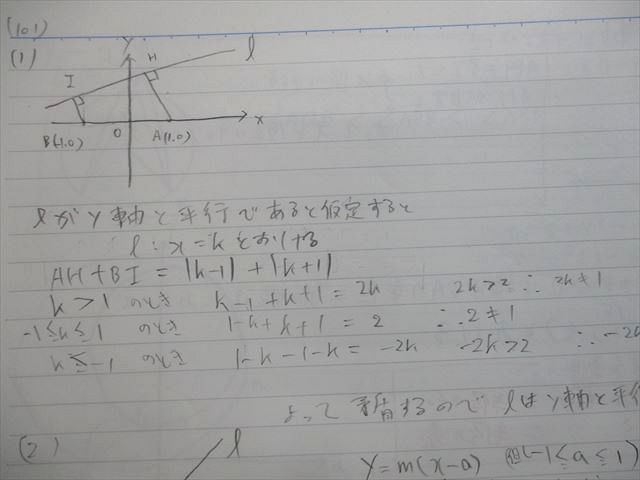 (101)
(1)
Y
H
l
I
B(-1.0) O A(1.0) x
lがY軸と平行であると仮定すると
l : x = k とおける
AH + BI = |k-1| + |k+1|
k > 1 のとき k-1+k+1 = 2k 2k>2 ∴ 2k≠1
-1≦k≦1 のとき 1-k+k+1 = 2 ∴ 2≠1
k≦-1 のとき 1-k-1-k = -2k -2k>2 ∴ -2k
よって矛盾するので lはY軸と平行
(2)
l
Y = m(x-a) (但し-1≦a≦1)